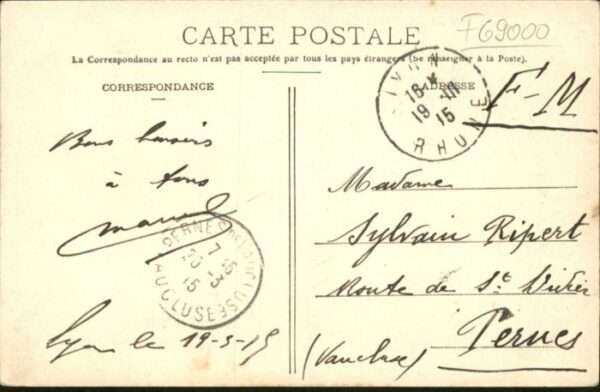 F69000
CARTE POSTALE
La Correspondance au recto n'est pas acceptée par tous les pays étrangers (Se renseigner à la Poste).
CORRESPONDANCE
ADRESSE
LYON
16 *
19 - III
15
RHONE
F-M
Bons baisers
à tous
Marcel
PERNES VAUCLUSE
7 15
20 - 3
15
Lyon le 19-3-15
Madame
Sylvain Ripert
Route de St
Pernes
(Vaucluse)